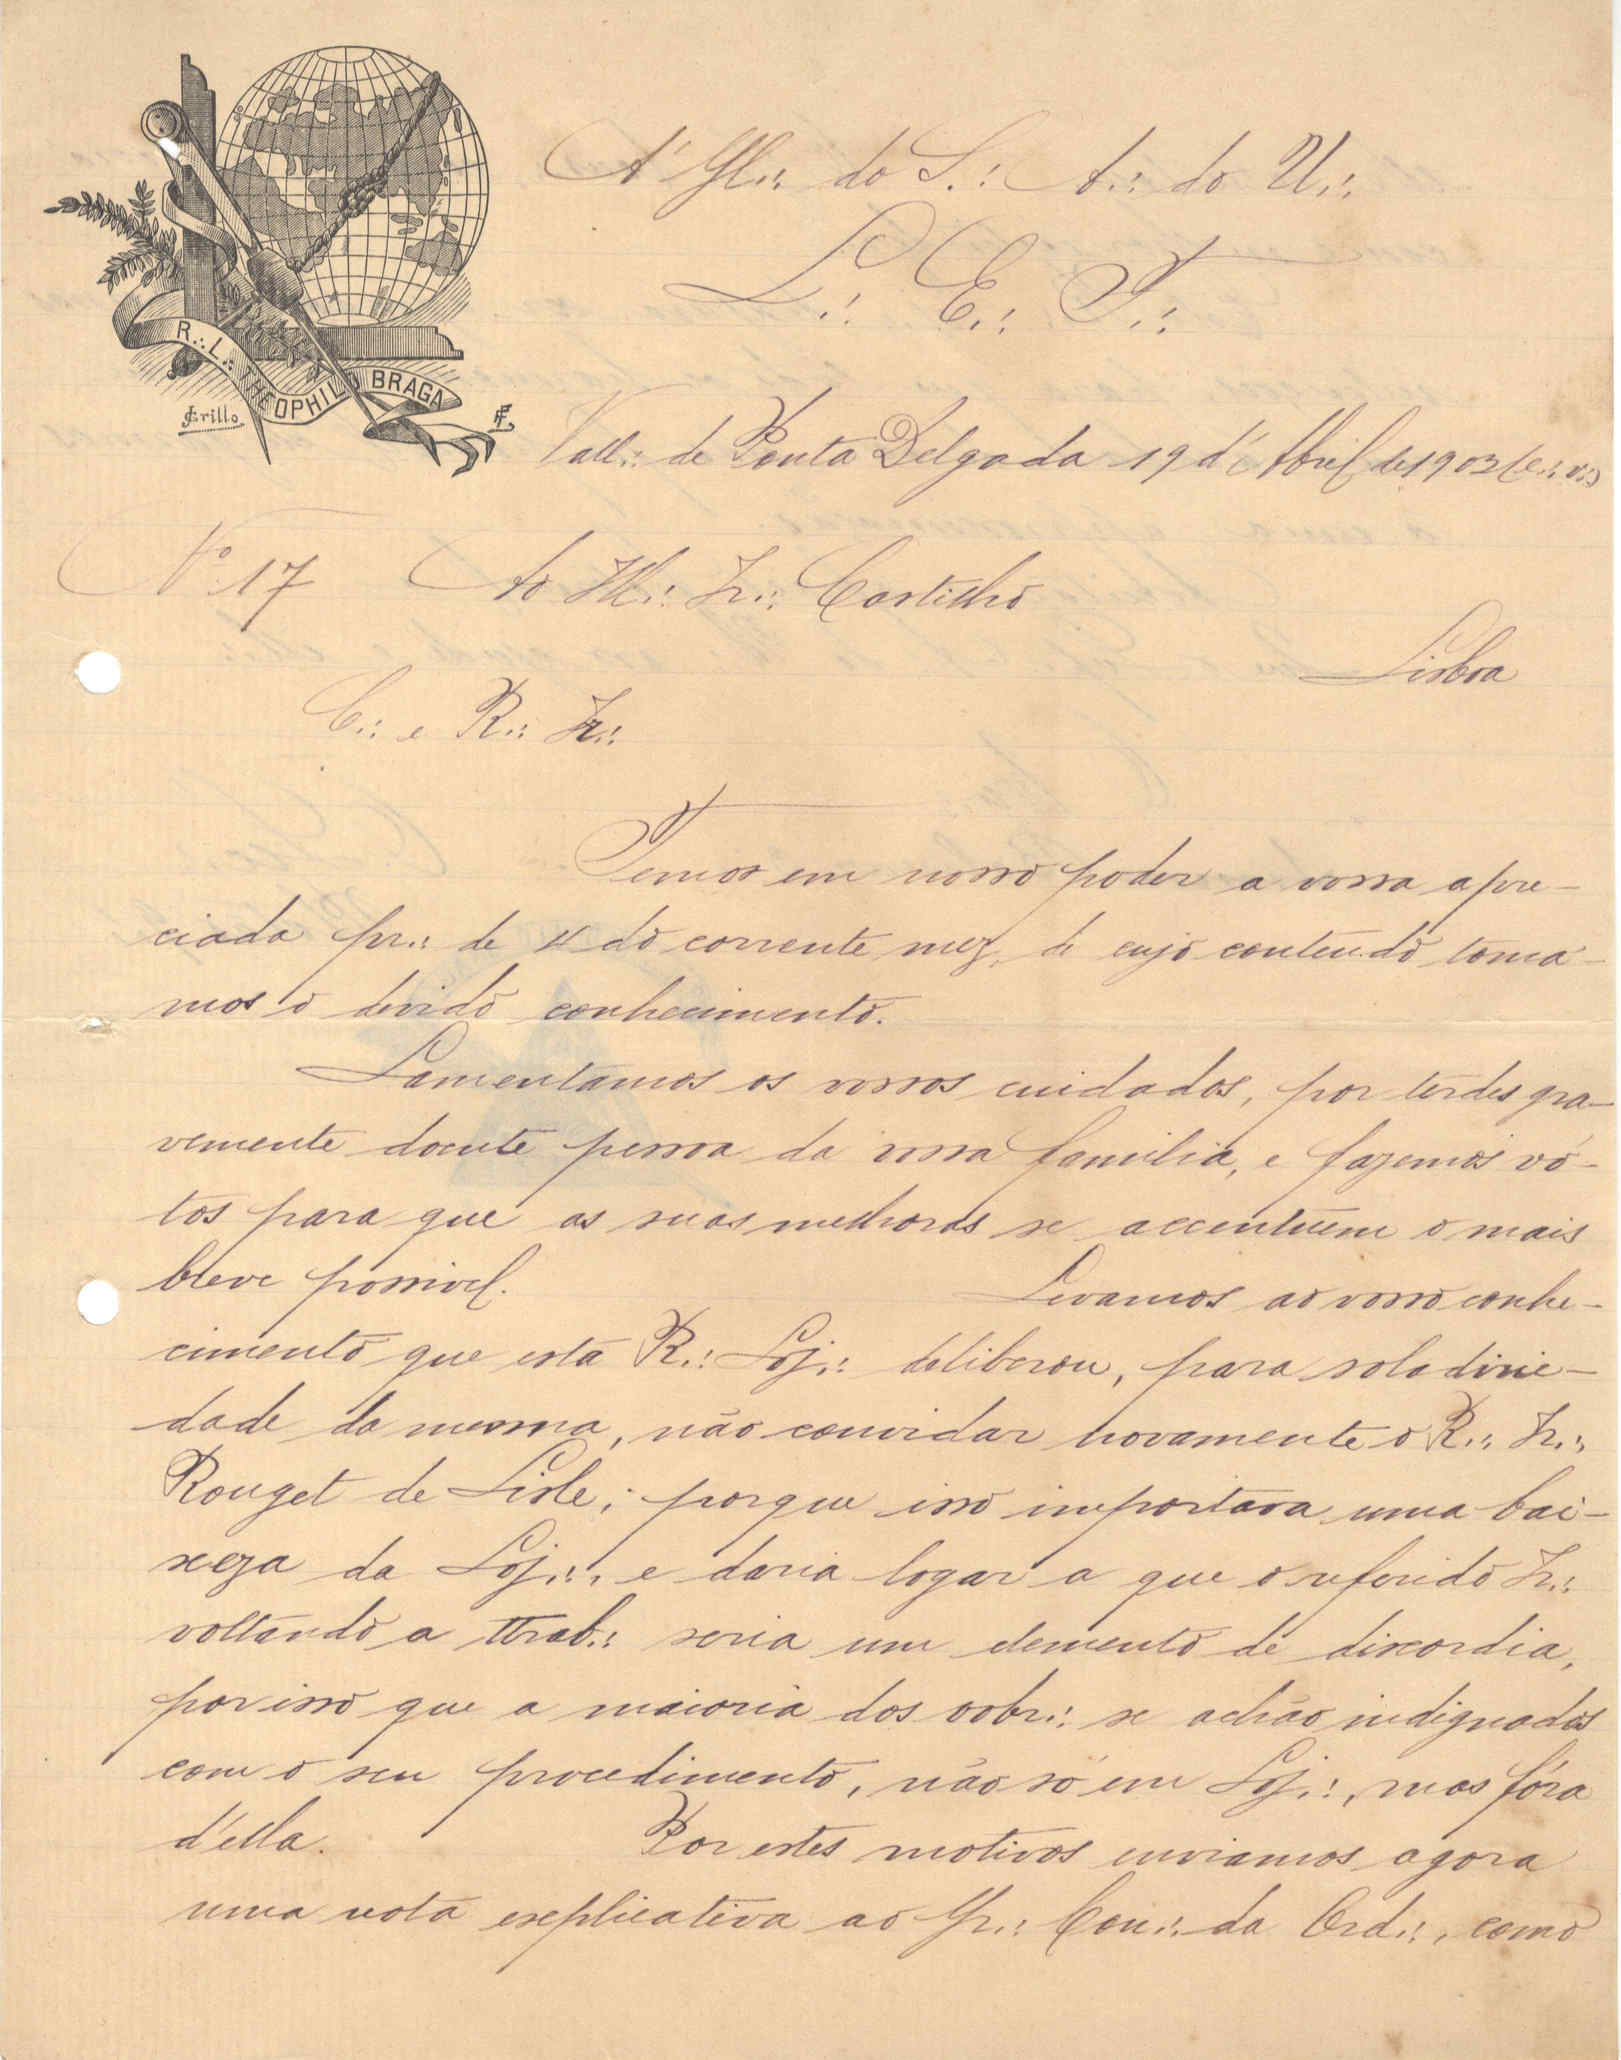 A' Gl.: do S.: A.: do U.:
L.: E.: F.:
R.:. L.:. THEOPHILO BRAGA
Grillo
Vall.: de Ponta Delgada 19 d'Abril de 1902 (e.: v.:)
Nº 17 Ao Ill.: Ir.: Castilho
Lisboa
C.: e R.: Ir.:
Temos em nosso poder a vossa apre-
ciada pr.: de 4 do corrente mez, de cujo conteudo toma-
mos o devido conhecimento.
Lamentamos os vossos cuidados, por terdes gra-
vemente doente pessoa da vossa familia, e fazemos vó-
tos para que as suas melhoras se accentuem o mais
breve possivel. Levamos ao vosso conhe-
cimento que esta R.: Loj.: deliberou, para soladirie-
dade da mesma, não convidar novamente o R.: Ir.:
Rouget de Lisle; porque isso importava uma bai-
xeza da Loj.:, e daria logar a que o referido Ir.:
voltando a ttrab.: seria um elemento de discordia,
por isso que a maioria dos oobr.: se achão indignados
com o seu procedimento, não só em Loj.:, mas fóra
d'ella. Por estes motivos enviamos agora
uma nota explicativa ao Gr.: Con.: da Ord.:, como